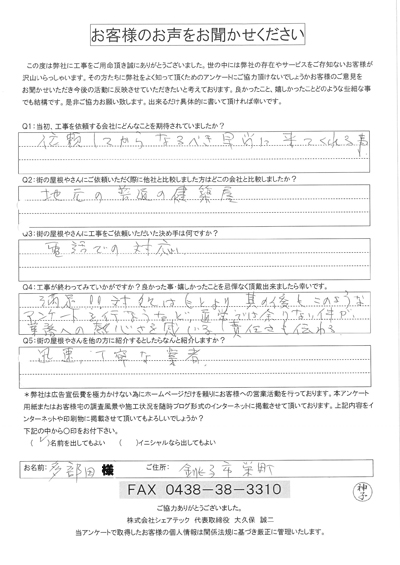 お客様のお声をお聞かせください
この度は弊社に工事をご用命頂き誠にありがとうございました。世の中には弊社の存在やサービスをご存知ないお客様が
沢山いらっしゃいます。その方たちに弊社をよく知って頂くためのアンケートにご協力頂けないでしょうかお客様のご意見を
お聞かせいただき今後の活動に反映させていただきたいと考えております。良かったこと、嬉しかったことどのような些細な事
でも結構です。是非ご協力お願い致します。出来るだけ具体的に書いて頂ければ幸いです。
Q1:当初、工事を依頼する会社にどんなことを期待されていましたか?
依頼してからなるべき早急に来てくれる事
Q2:街の屋根やさんにご依頼いただく際に他社と比較しました方はどこの会社と比較しましたか?
地元の普通の建築屋
Q3:街の屋根やさんに工事をご依頼いただいた決め手は何ですか?
電話での対応
Q4:工事が終わってみていかがですか?良かった事・嬉しかったことを忌憚なく頂戴出来ましたら幸いです。
満足!! 対応はもとより其の後もこのような
アンケートを行なうなど、通常では余りない作が
業務への熱心さを感じる 責任さも伝わる
Q5:街の屋根やさんを他の方に紹介するとしたらなんと紹介しますか?
迅速、丁寧な業者
*弊社は広告宣伝費を極力かけない為にホームページだけを頼りにお客様への営業活動を行っております。本アンケート
用紙またはお客様宅の調査風景や施工状況を随時ブログ形式のインターネットに掲載させて頂いております。上記内容をイ
ンターネットや印刷物に掲載させて頂いてもよろしいでしょうか?
下記の中から〇印をお付下さい。
(✓)名前を出してもよい ( )イニシャルなら出してもよい
お名前: 多部田 様 ご住所: 銚子市栄町
FAX 0438-38-3310
ご協力ありがとうございました。
株式会社シェアテック 代表取締役 大久保 誠二
当アンケートで取得したお客様の個人情報は関係法規に基づき厳正に管理いたします。